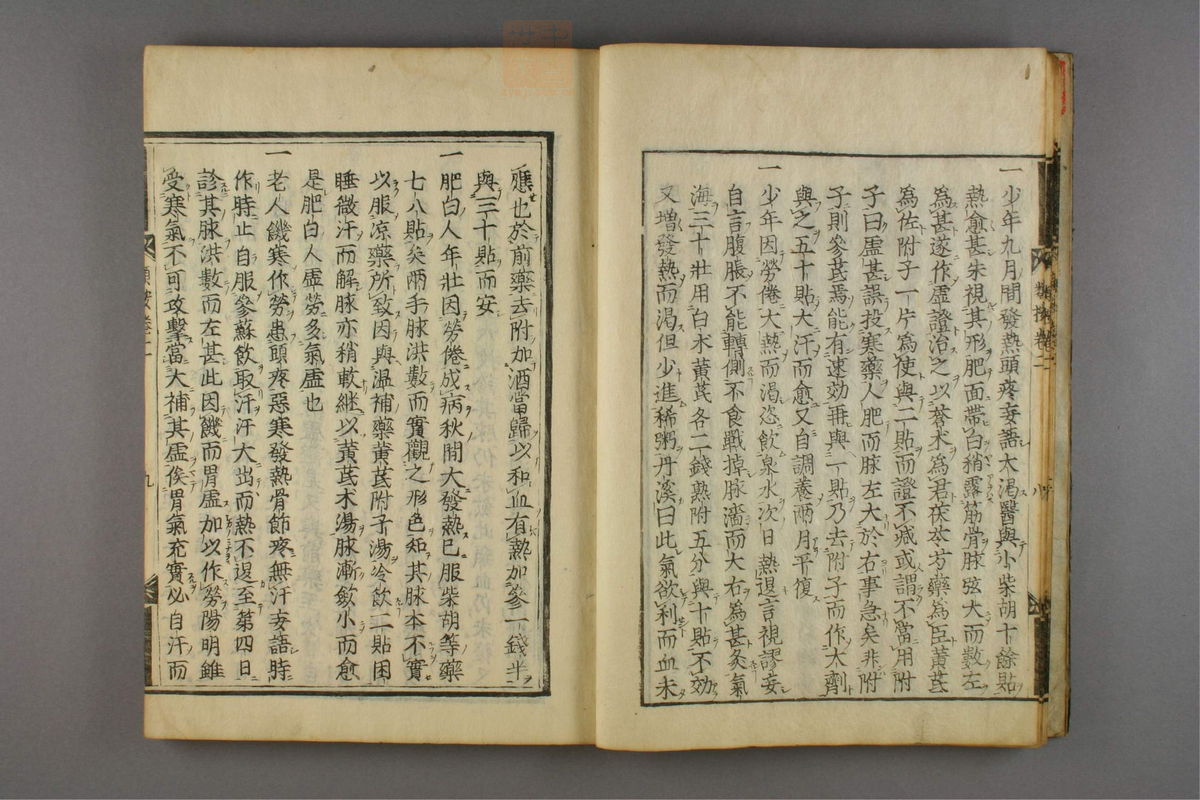 一少年九月間發熱頭疼妄語大渴醫與小柴胡十餘貼
熱愈甚朱視其形肥面帶白稍露筋骨脉弦大而數左
為甚遂作虛證治之以蒼朮為君茯苓芍藥為臣黃芪
為佐附子一片為使與二貼而證不減或謂不當用附
子曰虛甚誤投寒藥人肥而脉左大於右事急矣非附
子則參芪焉能有速効再與一貼乃去附子而作大劑
與之五十貼大汗而愈又自調養兩月平復
一少年因勞倦大熱而渴恣飲泉水次日熱退言視謬妄
自言腹脹不能轉側不食戰掉脉濇而大右為甚灸氣
海三十壯用白朮黃芪各二錢熟附五分與十貼不効
又增發熱而渴但少進稀粥丹溪曰此氣欲利而血未
應也於前藥去附加酒當歸以和血有熱加參一錢半
與三十貼而安
一肥白人年壯因勞倦成病秋間大發熱已服柴胡等藥
七八貼矣兩手脉洪數而實觀之形色知其脉本不實
以服涼藥所致因與溫補藥黃芪附子湯冷飲二貼困
睡微汗而解脉亦稍軟繼以黃芪朮湯脉漸斂小而愈
是肥白人虛勞多氣虛也
一老人饑寒作勞患頭疼惡寒發熱骨節疼無汗妄語時
作時止自服參蘇飲取汗汗大出而熱不退至第四日
診其脉洪數而左甚此因饑而胃虛加以作勞陽明雖
受寒氣不可攻擊當大補其虛俟胃氣充實必自汗而
九